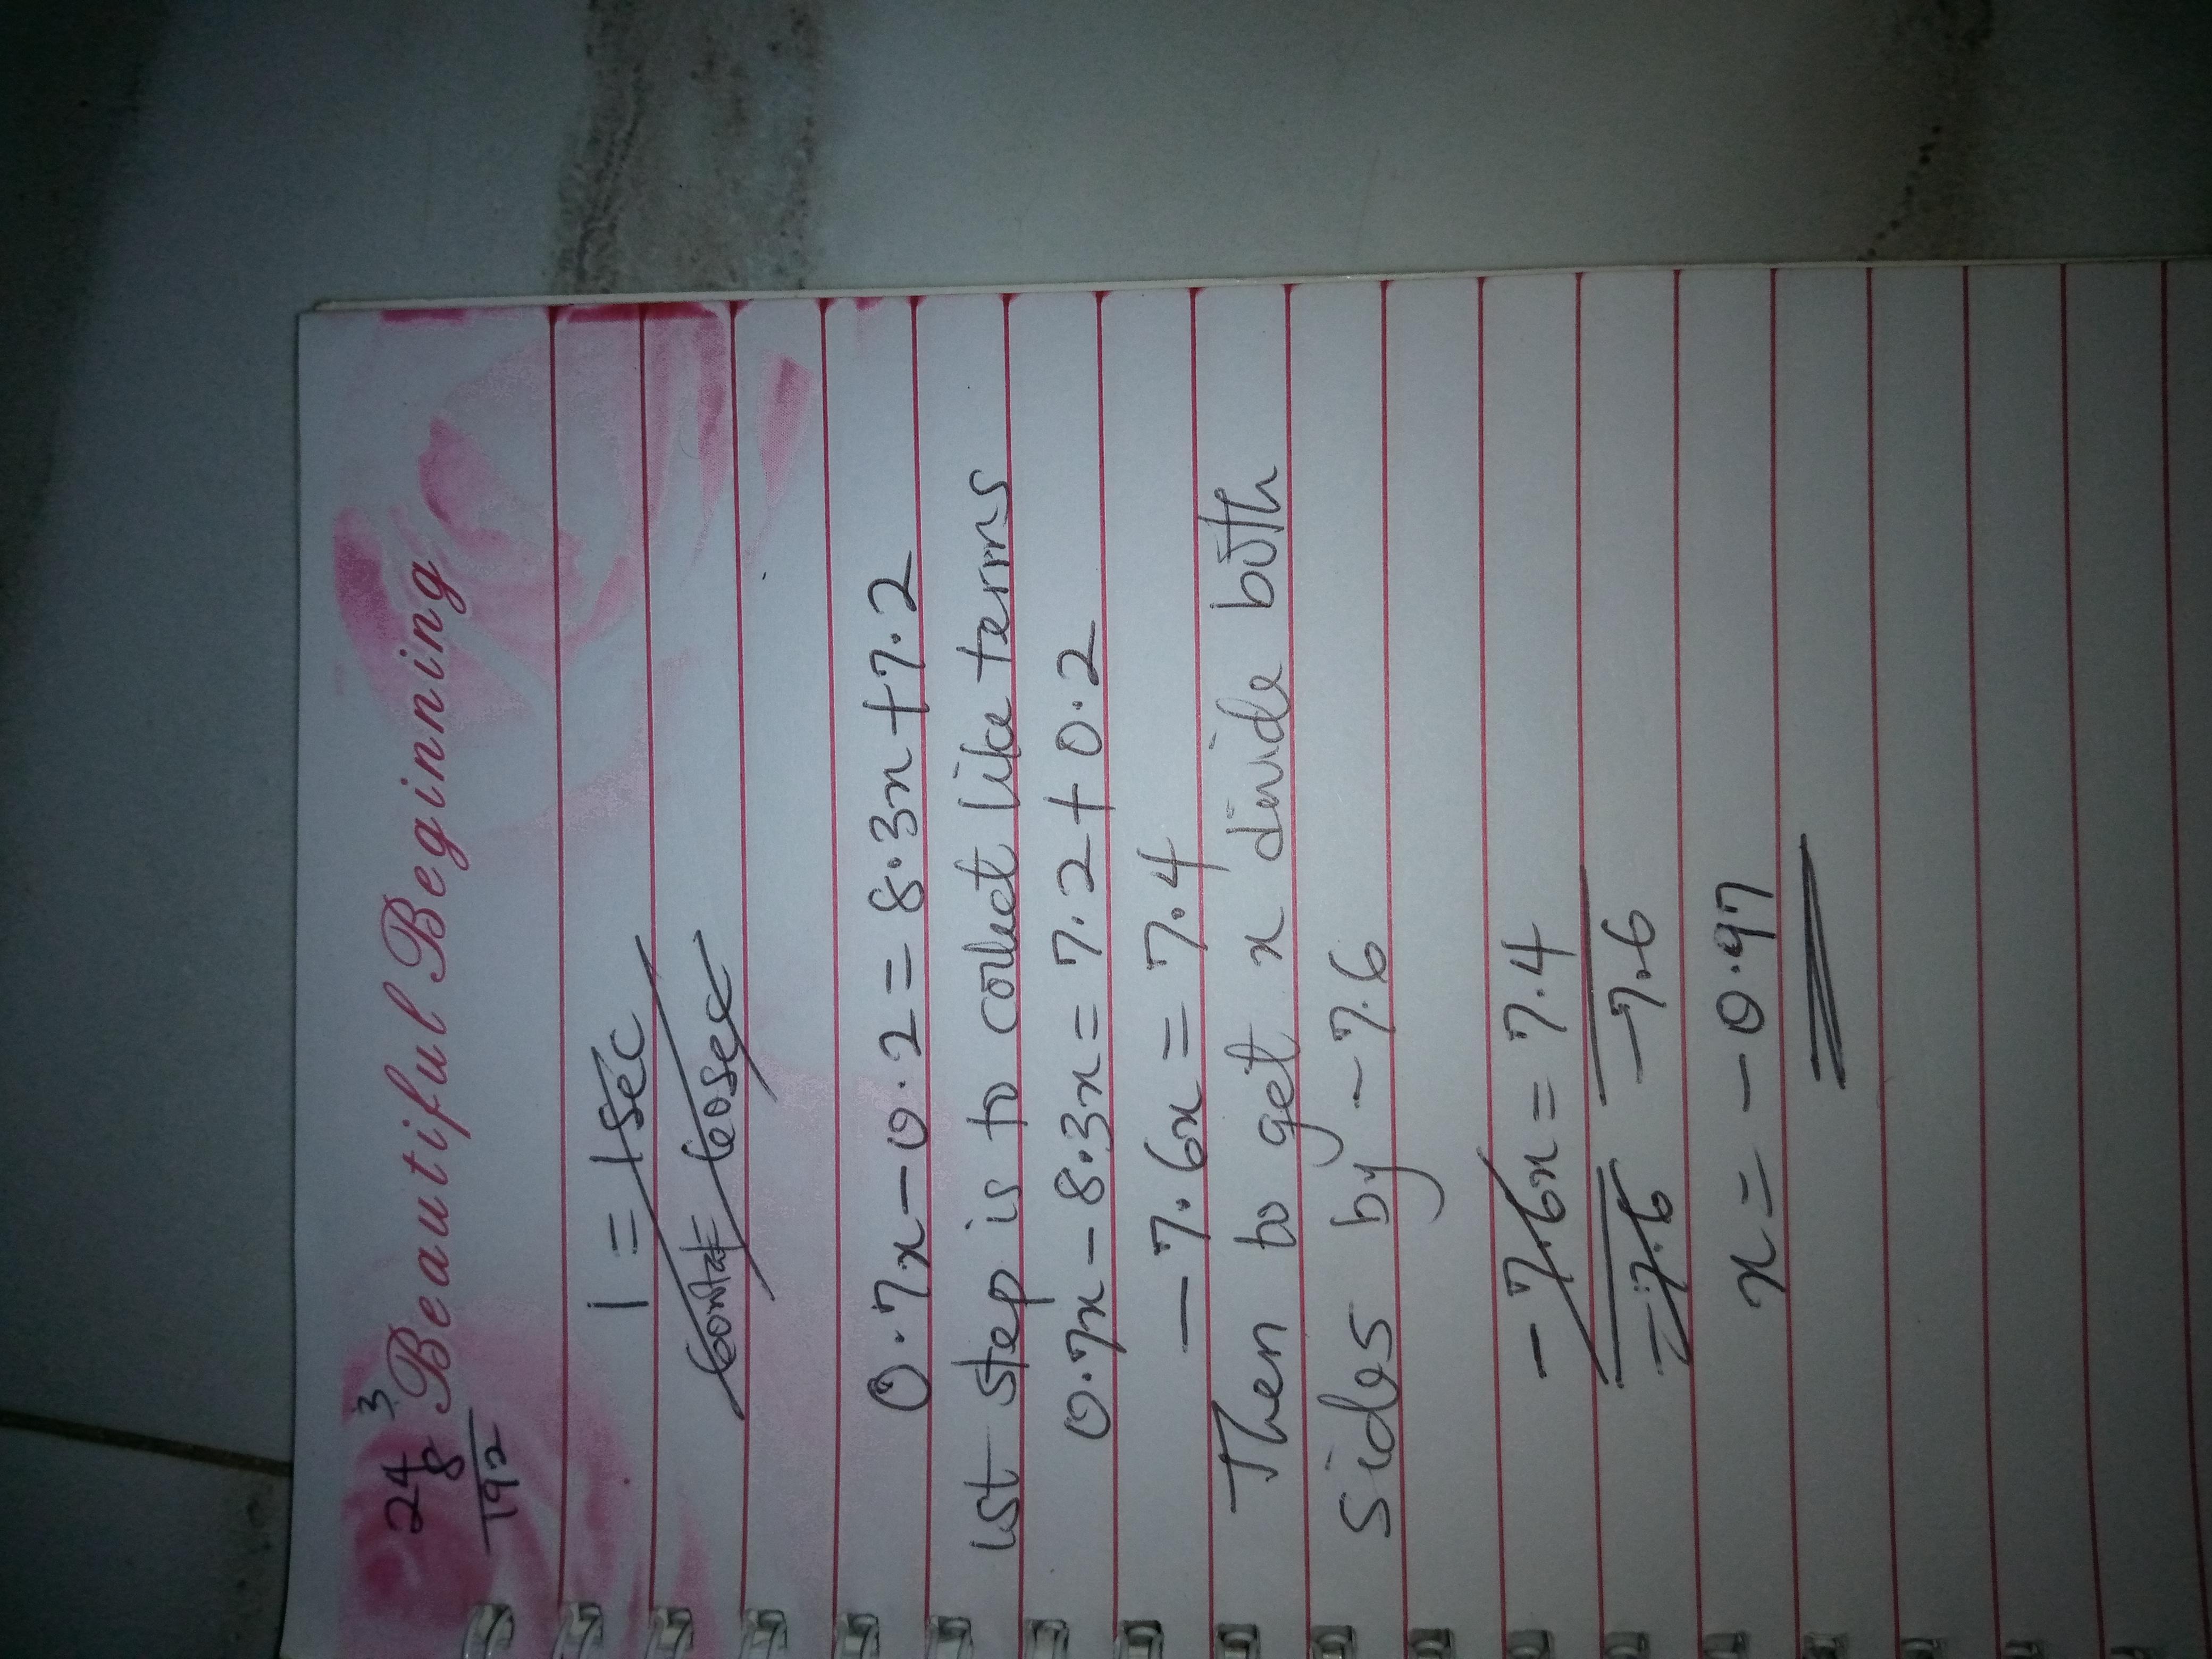 24 3
8
192
Beautiful Beginning
1 = 1sec
= 60sec
0.7x - 0.2 = 8.3x + 7.2
1st step is to collect like terms
0.7x - 8.3x = 7.2 + 0.2
- 7.6x = 7.4
Then to get x divide both
sides by - 7.6
- 7.6x = 7.4
- 7.6 - 7.6
x = - 0.97